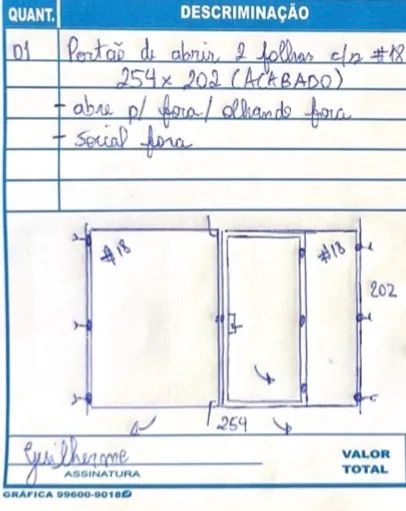 QUANT. DESCRIMINAÇÃO
01 Portão de abrir 2 folhas c/n #18
254 x 202 (ACABADO)
- abre p/ fora / olhando fora
- social fora
#18 #18
202
254
Guilherme
ASSINATURA
VALOR
TOTAL
GRÁFICA 99600-9018